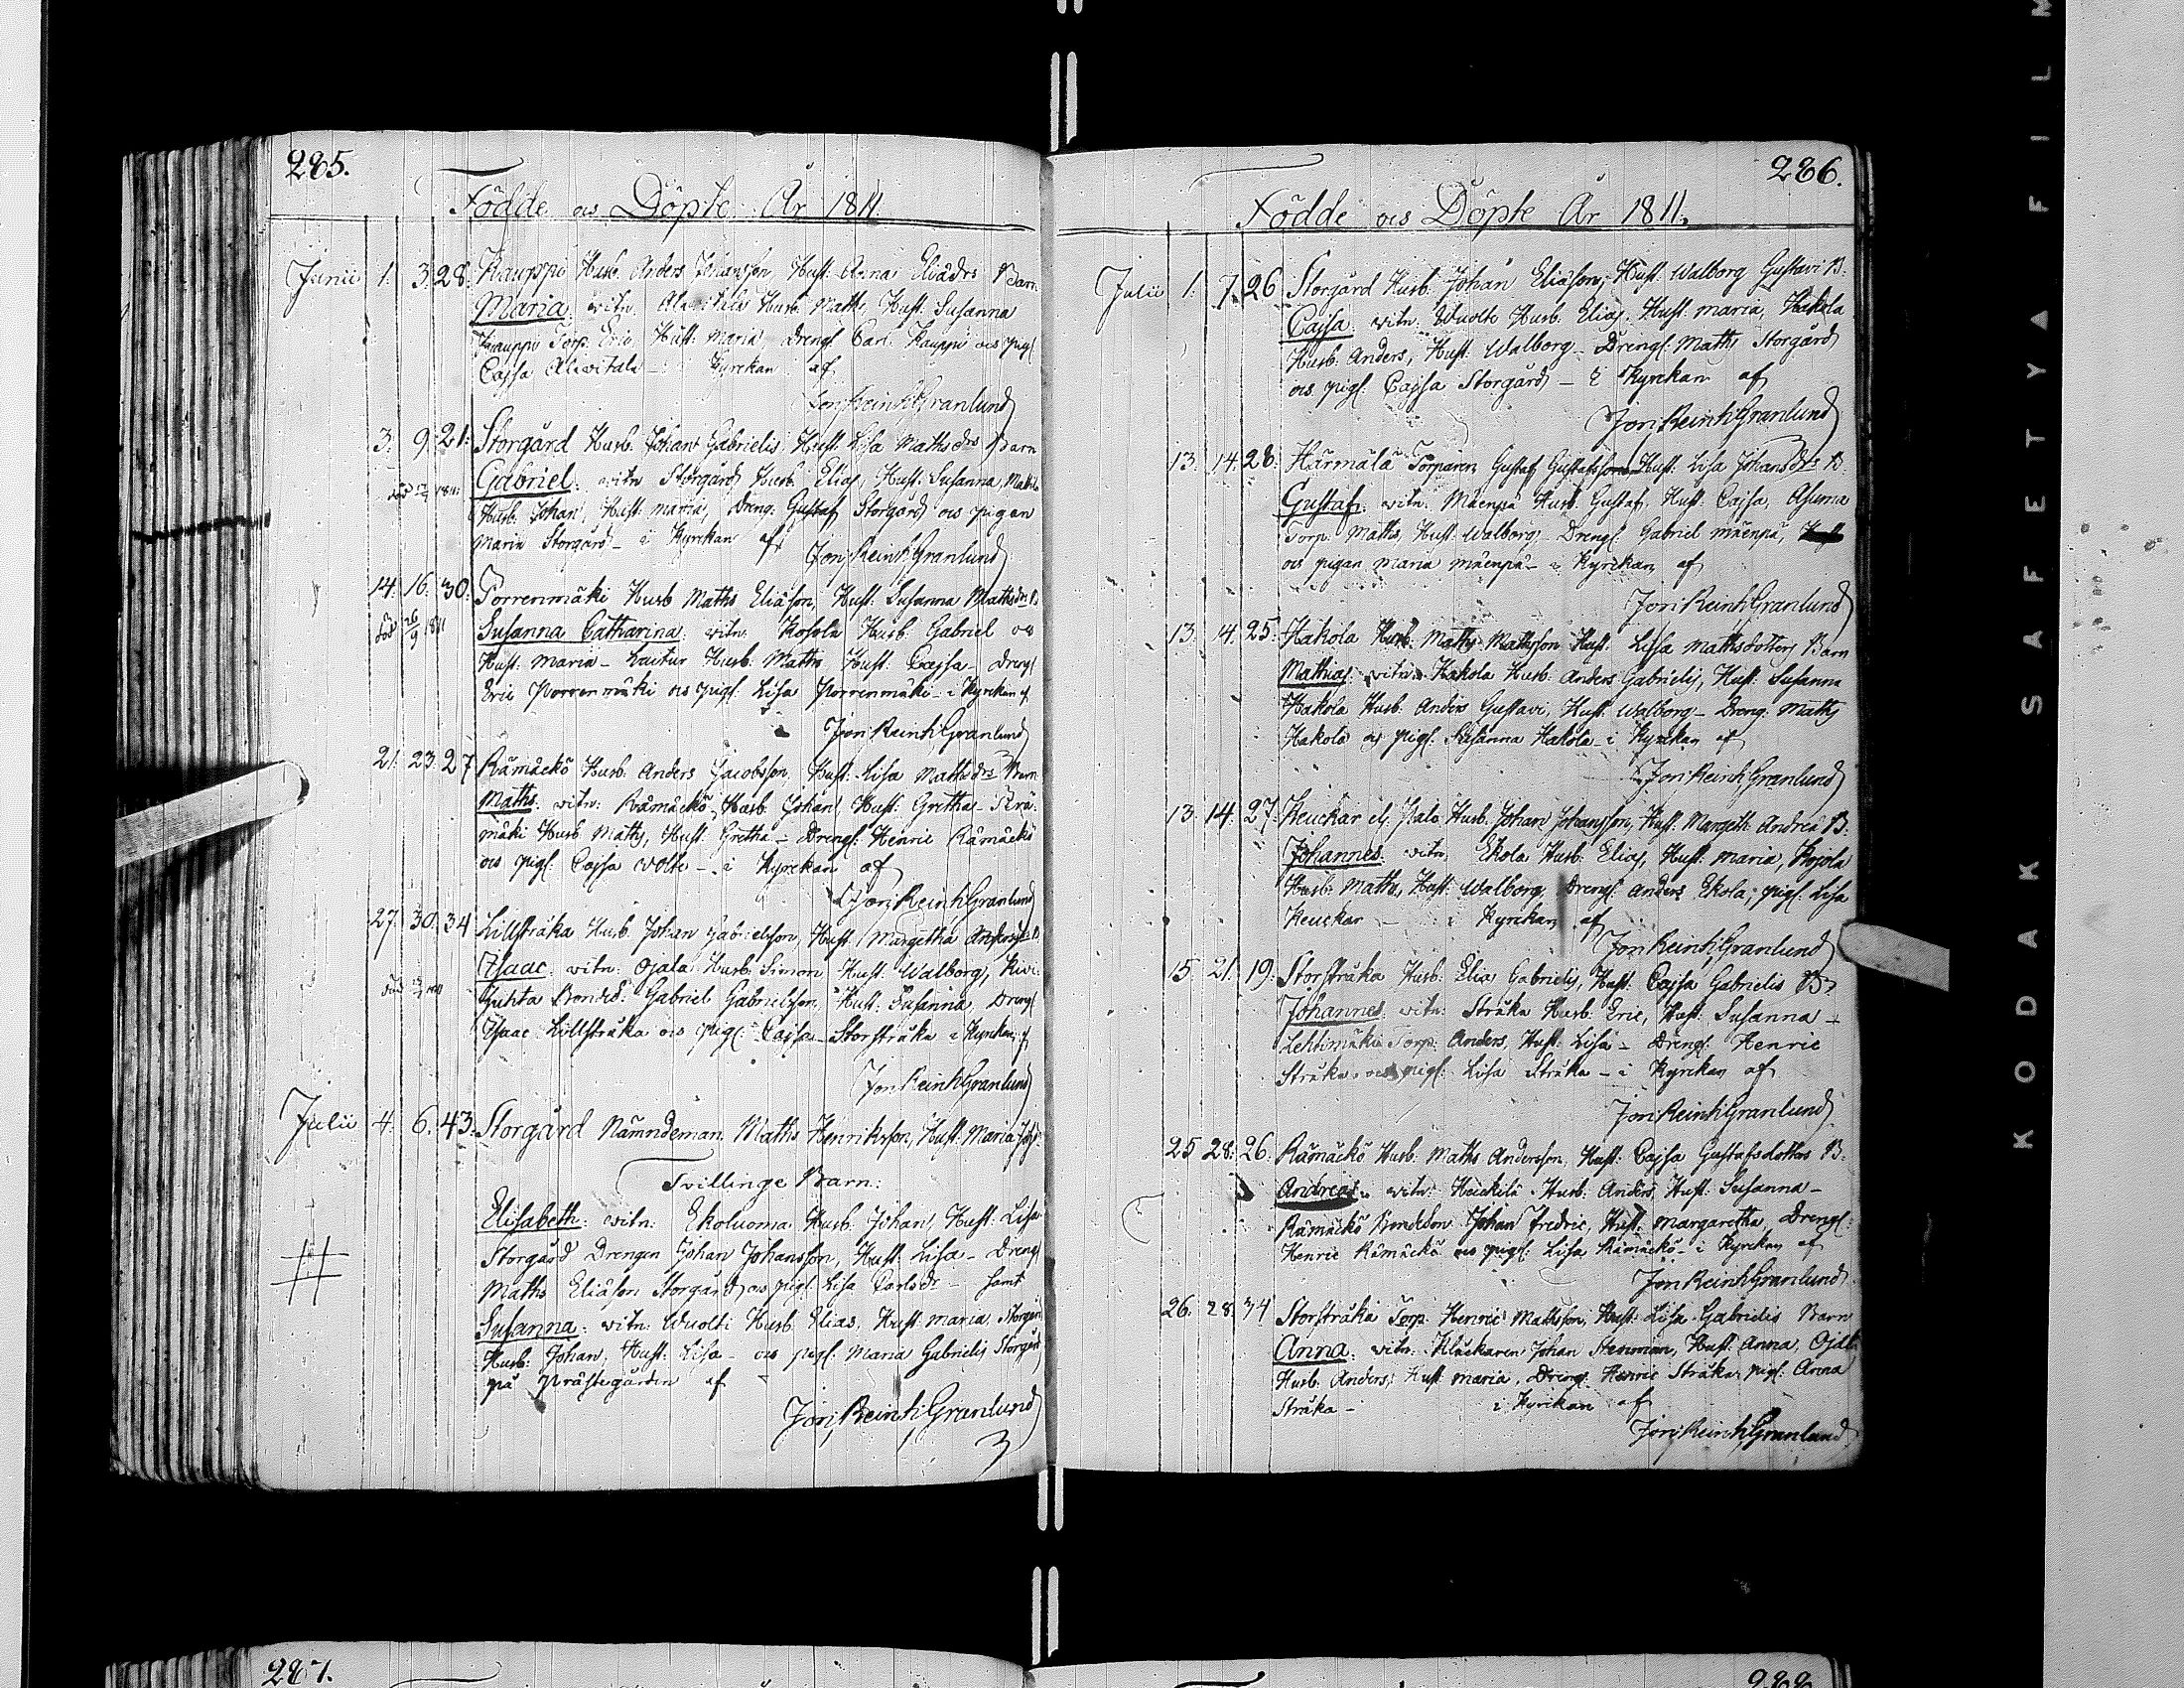 285.
Födde ocs Döpte År 1811
Junii 1. 3. 28. Kauppi Husb. Anders Johansson, Hust. Anna Eliædrs Barn
Maria: witn. Alawitala Husb. Matts, Hust. Susanna
Kauppi Torp. Eric, Hust: Maria, drengl Carl Kauppi ocs pigl
Cajsa Alawitala – Kyrckan af
Jon: Reinh: Granlund
3. 9. 21: Storgård Husb. Johan Gabrielis Hust: Lisa Mathsdrs Barn
död 1811 Gabriel: witn Storgård Husb. Elias, Hust: Susanna,
Husb. Johan, Hust: Maria, Dreng: Gustaf Storgård ocs pigan
Maria Storgård – i Kyrckan af
Jon: Reinh: Granlund
14. 16. 30. Porrenmäki Husb Maths Eliäson, Hust: Susanna Mathsdr B
död 26/9 1811 Susanna Catharina: witn. Kosola Husb. Gabriel ocs
Hust: Maria – Luutur Husb. Maths Hust: Cajsa – drengl
Eric Porrenmäki ocs pigl: Lisa Porrenmäki – i Kyrckan af
Jon: Reinh: Granlund
21. 23. 27 Rämäckö Husb: Anders Jacobsson, Hust: Lisa Mathsdrs Barn
Maths: witn: Rämäckö Husb Johan, Hust: Gretha –
mäki Husb Maths, Hust: Gretha – Drengl: Henric Rämäckö
ocs pigl: Cajsa Wolte – i Kyrckan af
Jon: Reinh: Granlund
27. 30. 34 Lillstråka Husb. Johan Gabrielsson, Hust: Margetha
Isaac: witn: Ojala Husb: Simon Hust: Walborg, Kivi
död Bondes: Gabriel Gabrielsson, Hust: Susanna, Drengl
Isaac Lillstråka ocs pigl: Cajsa Storstråka i Kyrckan af
Jon: Reinh: Granlund
Julii 4. 6. 43. Storgård Nämndeman Maths Henriksson, Hust: Maria
Tvillinge Barn:
Elisabeth: witn: Ekoluoma Husb. Johan, Hust: Lisa
Storgård Drengen Johan Johansson, Hust: Lisa – Drengl
Maths Eliäson Storgård ocs pigl. Lisa Carlsdr – samt
Susanna: witn: Wuolti Husb Elias, Hust: maria, Storgård
Husb: Johan, Hust: Lisa – ocs pigl: Maria Gabrielis Storgård
på Prästegården af
Jon: Reinh: Granlund
286.
Födde ocs Döpte År 1811.
Julii 1. 7. 26 Storgård Husb. Johan Eliäson, Hust: Walborg Gustavi B.
Cajsa: witn. Wuolte Husb. Elias, Hust. maria, Hakola
Husb. Anders, Hust: Walborg – Drengl: Maths Storgård
ocs pigl. Cajsa Storgård – i Kyrckan af
Jon: Reinh: Granlund
13. 14. 28. Härmälä Torparen Gustaf Gustafsson Hust: Lisa Johansdrs B.
Gustaf: witn. Mäenpä Husb. Gustaf, Hust. Cajsa, Asuma
Torp. Maths, Hust. Walborg – Drengl: Gabriel mäenpä,
ocs pigan maria mäenpä – i Kyrckan af
Jon: Reinh: Granlund
13. 14. 25. Hakola Husb: Maths Mathsson Hust: Lisa mathsdotters Barn
Mathias: witn. Hakola Husb. Anders Gabrielis, Hust: Susanna
Hakola Husb: Anders Gustavi, Hust. Walborg – Dreng: Maths
Hakola ocs pigl: Susanna Hakola – i Kyrckan af
Jon: Reinh: Granlund
13. 14. 27. Keuckar el. Palo Husb. Johan Johansson, Hust: Margeth Andreæ B.
Johannes: witn. Ekola Husb: Elias, Hust: maria, Kojola
Husb: Maths, Hust: Walborg, Drengl: Anders Ekola, pigl: Lisa
Keuckar – i Kyrckan af
Jon: Reinh: Granlund
15. 21. 19. Storstråka Husb. Elia Gabrielis, Hust: Cajsa Gabrielis B.
Johannes: witn: Stråka Husb. Eric, Hust: Susanna –
Lehtimäki Torp. Anders, Hust: Lisa – Drengl: Henric
Stråka, ocs pigl: Lisa Stråka – i Kyrckan af
Jon: Reinh: Granlund
25 28. 26. Rämäckö Husb: Maths Andersson, Hust: Cajsa Gustafsdotters B.
Andreas: witn: Heickilä Husb: Anders Hust: Susanna –
Rämäckö Bondeson Johan Fredric, Hust: Margaretha, Drengl:
Henric Rämäckö ocs pigl: Lisa Rämäckö – i Kyrckan af
Jon: Reinh: Granlund
26. 28. 34 Storstråka Torp. Henric Mathsson, Hust: Lisa Gabrielis Barn
Anna: witn: Klåckaren Johan Stenman, Hust: Anna, Ojala
Husb. Anders, Hust maria, Drengl: Henric Stråka, pigl: Anna
Stråka – i Kyrckan af
Jon: Reinh: Granlund
287.
288
KODAK SAFETY ▲ FILM